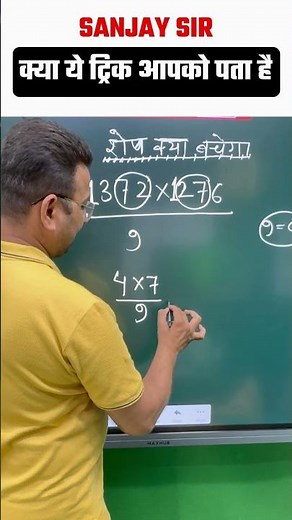 SANJAY SIR
क्या ये ट्रिक आपको पता है
शेष क्या बचेगा
1372×1276
9
9=
4×7
9